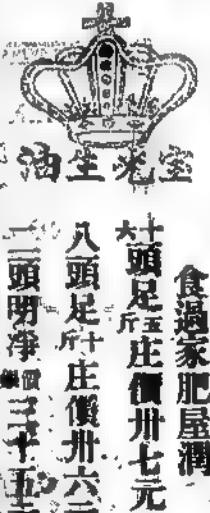 室光生油
食過家肥屋潤
十六頭足五斤庄價卅七元
八頭足十斤庄價卅六元
二頭明淨價銀三十五